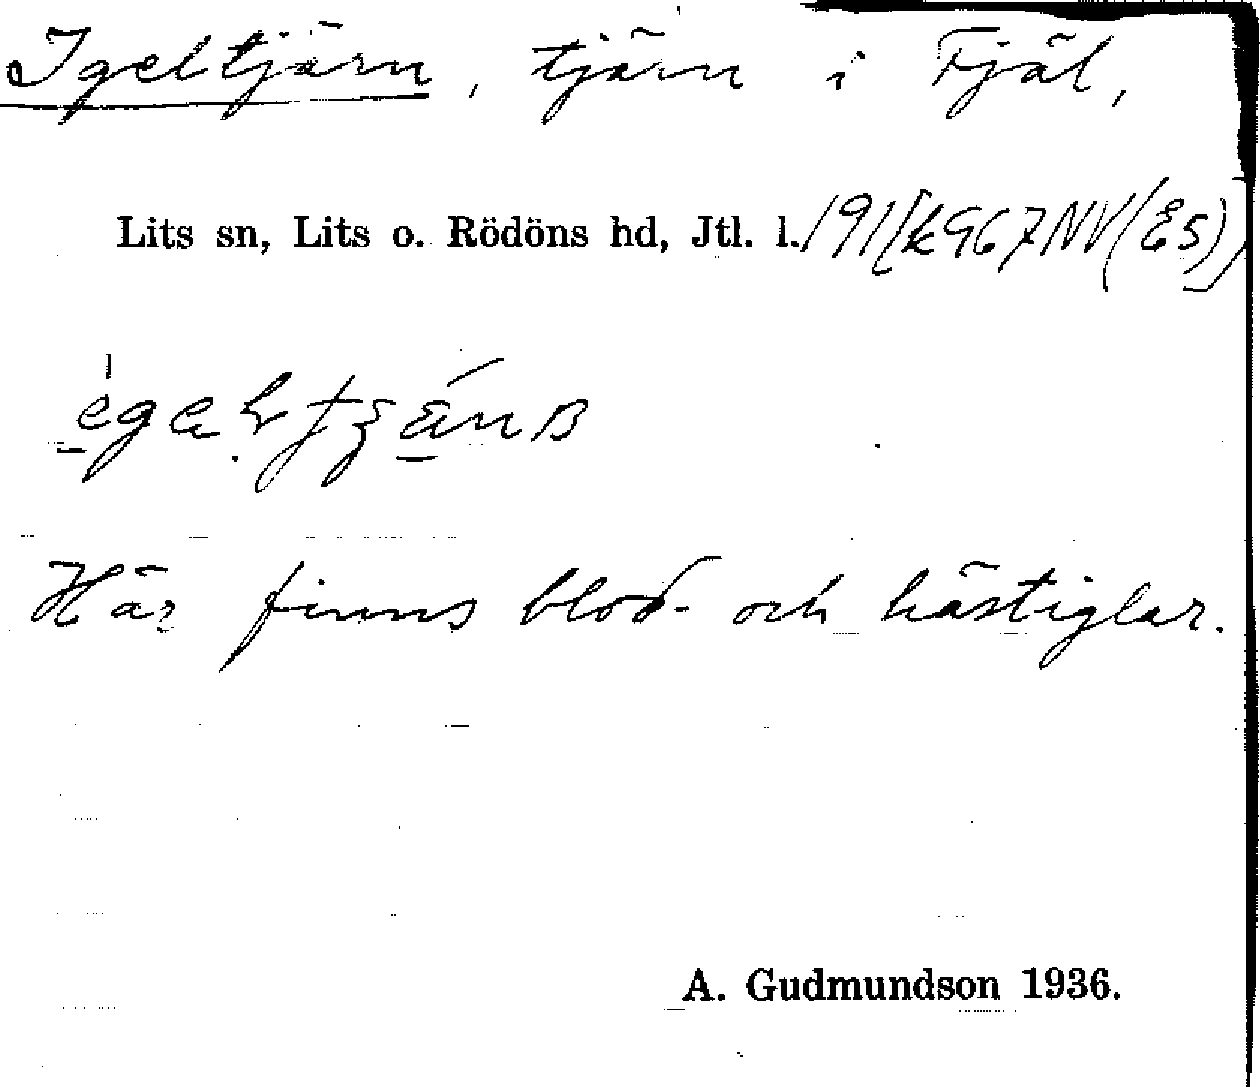 Igeltjärn, tjärn i Fjäl,
Lits sn, Lits o. Rödöns hd, Jtl. l.
Här finns blod- och hästiglar.
A. Gudmundson 1936.